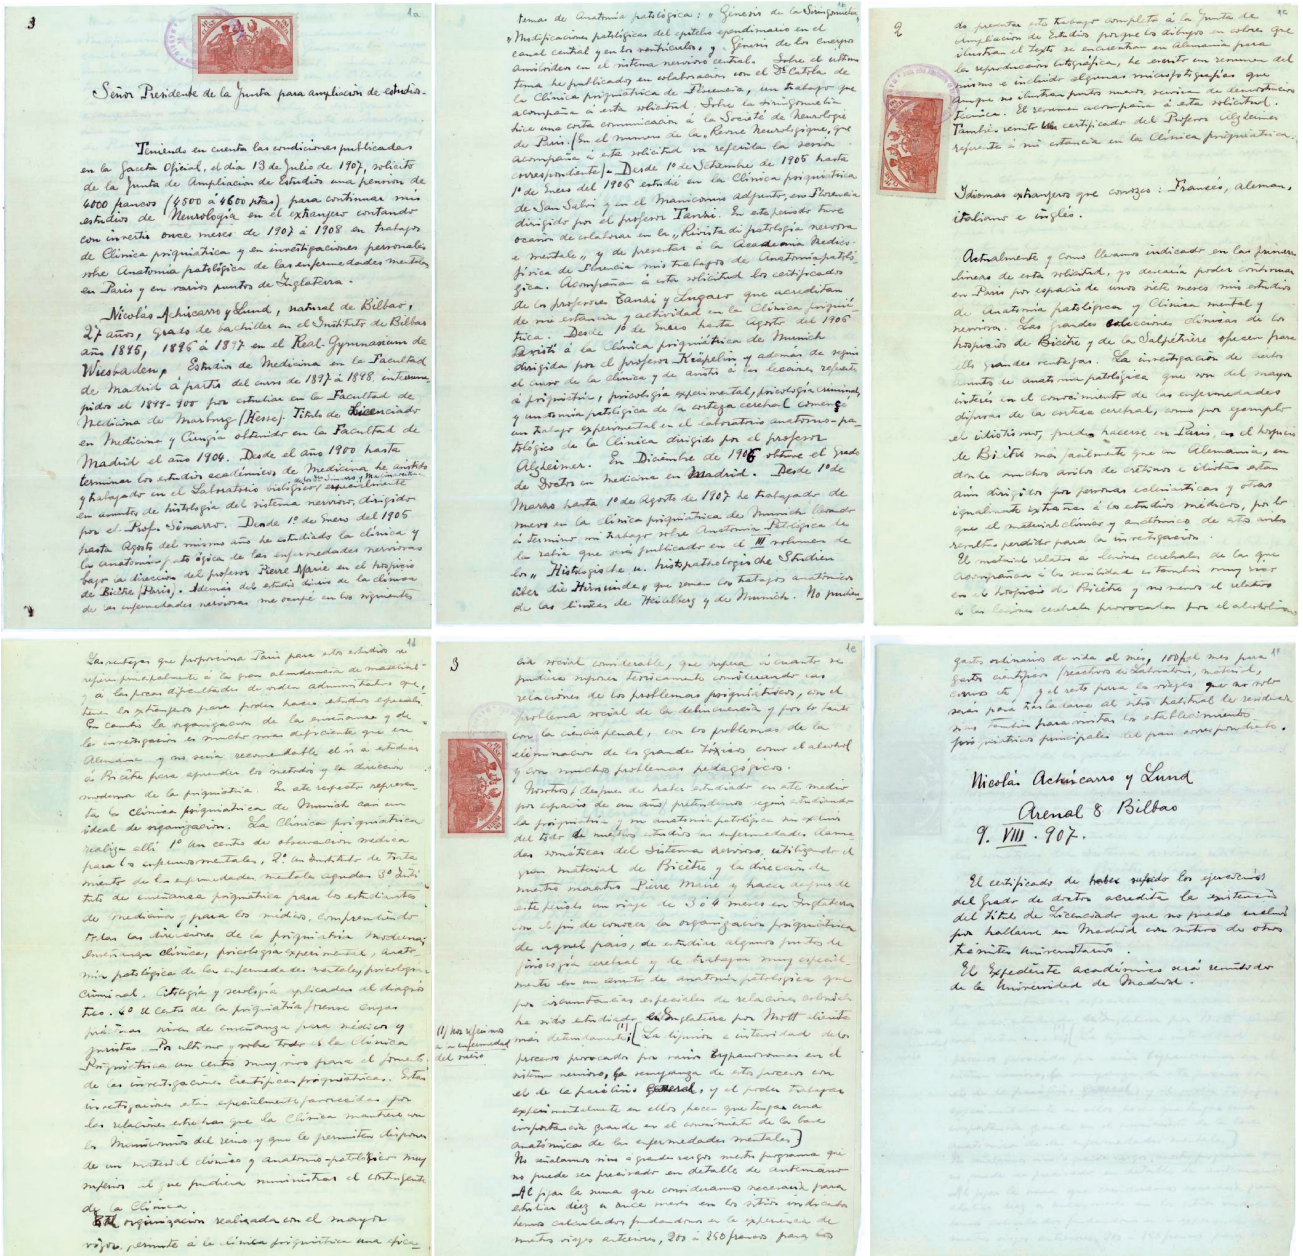 3
1a
Señor Presidente de la Junta para ampliación de estudios.
Teniendo en cuenta las condiciones publicadas
en la Gaceta Oficial, el día 13 de Julio de 1907, solicito
de la Junta de Ampliacion de Estudios una pension de
4000 francos (4500 à 4600 ptas) para continuar mis
estudios de Neurología en el extranjero contando
con invertir once meses de 1907 à 1908 en trabajos
de Clínica psiquiátrica y en investigaciones personales
sobre Anatomía patológica de las enfermedades mentales
en Paris y en varios puntos de Inglaterra.
Nicolás Achúcarro y Lund, natural de Bilbao,
27 años, grado de bachiller en el Instituto de Bilbao
año 1895, 1896 à 1897 en el Real-Gymnasium de
Wiesbaden, Estudios de Medicina en la Facultad
de Madrid á partir del curso de 1897 à 1898, interrum-
pidos el 1899-900 por estudiar en la Facultad de
Medicina de Marburg (Hesse). Titulo de Licenciado
en Medicina y Cirugía obtenido en la Facultad de
Madrid el año 1904. Desde el año 1900 hasta
terminar los estudios académicos de Medicina he asistido
y trabajado en el Laboratorio biológico especialmente
en asuntos de histología del sistema nervioso, dirigido
por el Prof. Simarro. Desde 1º de Enero del 1905
hasta Agosto del mismo año he estudiado la clínica y
la anatomía patológica de las enfermedades nerviosas
bajo la direccion del profesor Pierre Marie en el hospicio
de Bicêtre (Paris). Además del estudio diario de la clínica
de las enfermedades nerviosas me ocupé en los siguientes
temas de Anatomía patológica: "Génesis de la Siringomielia,
Modificaciones patológicas del epitelio ependimario en el
canal central y en los ventrículos, y Génesis de los cuerpos
amiloideos en el sistema nervioso central. Sobre el ultimo
tema he publicado en colaboracion con el Dr Catola de
la Clínica psiquiátrica de Florencia, un trabajo que
acompaña á esta solicitud. Sobre la siringomielia
hice una corta comunicacion à la Societé de Neurologie
de Paris. (En el numero de la "Revue Neurologique, que
acompaña á esta solicitud va referida la sesion
correspondiente). Desde 1º de Setiembre de 1905 hasta
1º de Enero del 1906 estudié en la Clínica psiquiatrica
de San Salvi y en el Manicomio adjunto, en Florencia
dirigido por el profesor Tanzi. En este periodo tuve
ocasion de colaborar en la "Rivista di patologia nervosa
e mentale" y de presentar à la Academia Medico-
física de Florencia mis trabajos de Anatomía patoló-
gica. Acompañan a esta solicitud los certificados
de los profesores Tanzi y Lugaro que acreditan
de mi estancia y actividad en la Clínica psiquiá-
trica. Desde 1º de Enero hasta Agosto del 1906
asistí á la Clínica psiquiátrica de Munich
dirigida por el profesor Kräpelin y además de seguir
el curso de la clínica y de asistir a las lecciones referentes
á psiquiatria, psicología experimental, psicología criminal,
y anatomía patológica de la corteza cerebral comencé
un trabajo experimental en el laboratorio anatomo-pa-
tológico de la Clínica dirigido por el profesor
Alzheimer. En Diciembre de 1906 obtuve el grado
de Doctor en Medicina en Madrid. Desde 1º de
Marzo hasta 1º de Agosto de 1907 he trabajado de
nuevo en la clínica psiquiátrica de Munich llevando
á término mi trabajo sobre Anatomía Patológica de
la rabia que será publicado en el III volumen de
los "Histologische u. histopathologische Studien
über die Hirnrinde, que reunen los trabajos anatómicos
de las clínicas de Heidelberg y de Munich. No pudien-
2
1c
do presentar este trabajo completo á la Junta de
Ampliacion de Estudios porque los dibujos en colores que
ilustran el texto se encuentran en Alemania para
la reproduccion litográfica, he escrito un resumen del
mismo e incluido algunas microfotografias que
aunque no ilustran puntos nuevos sirven de demostracion
técnica. El resumen acompaña á esta solicitud.
Tambien remito un certificado del Profesor Alzheimer
referente á mi estancia en la Clínica psiquiatrica.
Idiomas extranjeros que conozco: Francés, aleman,
italiano e inglés.
Actualmente y como llevamos indicado en las primeras
lineas de esta solicitud, yo desearía poder continuar
en Paris por espacio de unos siete meses mis estudios
de Anatomía patológica y Clínica mental y
nerviosa. Las grandes colecciones clínicas de los
hospicios de Bicêtre y de la Salpêtrière ofrecen para
ello grandes ventajas. La investigacion de ciertos
puntos de anatomia patológica que son del mayor
interés en el conocimiento de las enfermedades
difusas de la corteza cerebral, como por ejemplo
el idiotismo, puede hacerse en Paris, en el hospicio
de Bicêtre más facilmente que en Alemania, en
donde muchos asilos de cretinos e idiotas estan
aún dirigidos por personas eclesiasticas y otras
igualmente extrañas á los estudios médicos, por lo
que el material clínico y anatómico de este modo
resulta perdido para la investigación.
El material relativo a lesiones cerebrales de las que
acompañan à la senilidad es tambien muy rico
en el hospicio de Bicêtre y no menos el relativo
à las lesiones cerebrales provocadas por el alcoholismo
1d
Las ventajas que proporciona Paris para estos estudios se
refieren principalmente á la gran abundancia de material
y a las pocas dificultades de orden administrativo que
tienen los extranjeros para poder hacer estudios especiales.
En cambio la organizacion de la enseñanza y de
la investigacion es mucho mas deficiente que en
Alemania y no seria recomendable el ir a estudiar
à Bicêtre para aprender los metodos y la direccion
moderna de la psiquiatria. En este respecto represen-
ta la Clínica psiquiatrica de Munich casi un
ideal de organizacion. La Clínica psiquiatrica
realiza alli 1º un centro de observacion médica
para los enfermos mentales, 2º un Instituto de trata-
miento de las enfermedades mentales agudas 3º Insti-
tuto de enseñanza psiquiatrica para los estudiantes
de medicina y para los médicos, comprendiendo
todas las direcciones de la psiquiatria moderna:
Enseñanza clínica, psicología experimental, anato-
mia patológica de las enfermedades mentales, psicologia
criminal, citologia y serología aplicadas al diagnós-
tico. 4º un centro de la psiquiatria forense cuyas
practicas sirven de enseñanza para médicos y
juristas. Por ultimo y sobre todo es la clínica
Psiquiatrica un centro muy vivo para el fomento
de las investigaciones científicas psiquiatricas. Estas
investigaciones estan especialmente favorecidas por
las relaciones estrechas que la Clínica mantiene con
los Manicomios del reino y que le permiten disponer
de un material clínico y anatomo-patológico muy
superior al que pudiera suministrar el contingente
de la Clínica.
organizacion realizada con el mayor
rigor, permite á la clínica psiquiatrica una efica-
3
1e
cia social considerable, que supera a cuanto se
pudiera suponer teoricamente considerando las
relaciones de los problemas psiquiatricos, con el
problema social de la delincuencia y por lo tanto
con la ciencia penal, con los problemas de la
eliminacion de los grandes tóxicos como el alcohol
y con muchos problemas pedagógicos.
Nosotros, despues de haber estudiado en este medio
por espacio de un año, pretendemos seguir estudiando
la psiquiatria y su anatomia patológica sin excluir
del todo de nuestros estudios las enfermedades llama-
das somáticas del Sistema nervioso, utilizando el
gran material de Bicêtre y la direccion de
nuestro maestro Pierre Marie y hacer despues de
este periodo un viaje de 3 ó 4 meses en Inglaterra
con el fin de conocer la organizacion psiquiátrica
de aquel pais, de estudiar algunos puntos de
fisiología cerebral y de trabajar muy especial-
mente en un asunto de anatomia patologica que
por circunstancias especiales de relaciones coloniales
ha sido estudiado en Inglaterra por Mott
más detenidamente; (1) [La difusion e intensidad de los
procesos provocados por varios trypanosomas en el
sistema nervioso, la semejanza de estos procesos con
el de la parálisis general, y el poder trabajar
experimentalmente en ellos, hacen que tengan una
importancia grande en el conocimiento de la base
anatómica de las enfermedades mentales]
No señalamos sino á grandes rasgos nuestro programa que
no puede ser precisado en detalle de antemano
Al fijar la suma que consideramos necesaria para
estudiar diez u once meses en los sitios indicados
hemos calculado fundandonos en la experiencia de
nuestros viajes anteriores, 200 à 250 francos para los
(1) Nos referimos
a la enfermedad
del sueño
1f
gastos ordinarios de vida al mes, 100 ptas al mes para
gastos científicos (reactivos de Laboratorio, material,
correos etc) y el resto para los viajes que no solo
serán para trasladarse al sitio habitual de residencia
sino tambien para visitar los establecimientos
psiquiatricos principales del pais correspondiente.
Nicolás Achúcarro y Lund
Arenal 8 Bilbao
9. VIII. 907.
El certificado de haber sufrido los ejercicios
del grado de doctor acredita la existencia
del titulo de Licenciado que no puedo incluir
por hallarse en Madrid con motivo de otros
trámites Universitarios.
El Expediente académico será remitido
de la Universidad de Madrid.